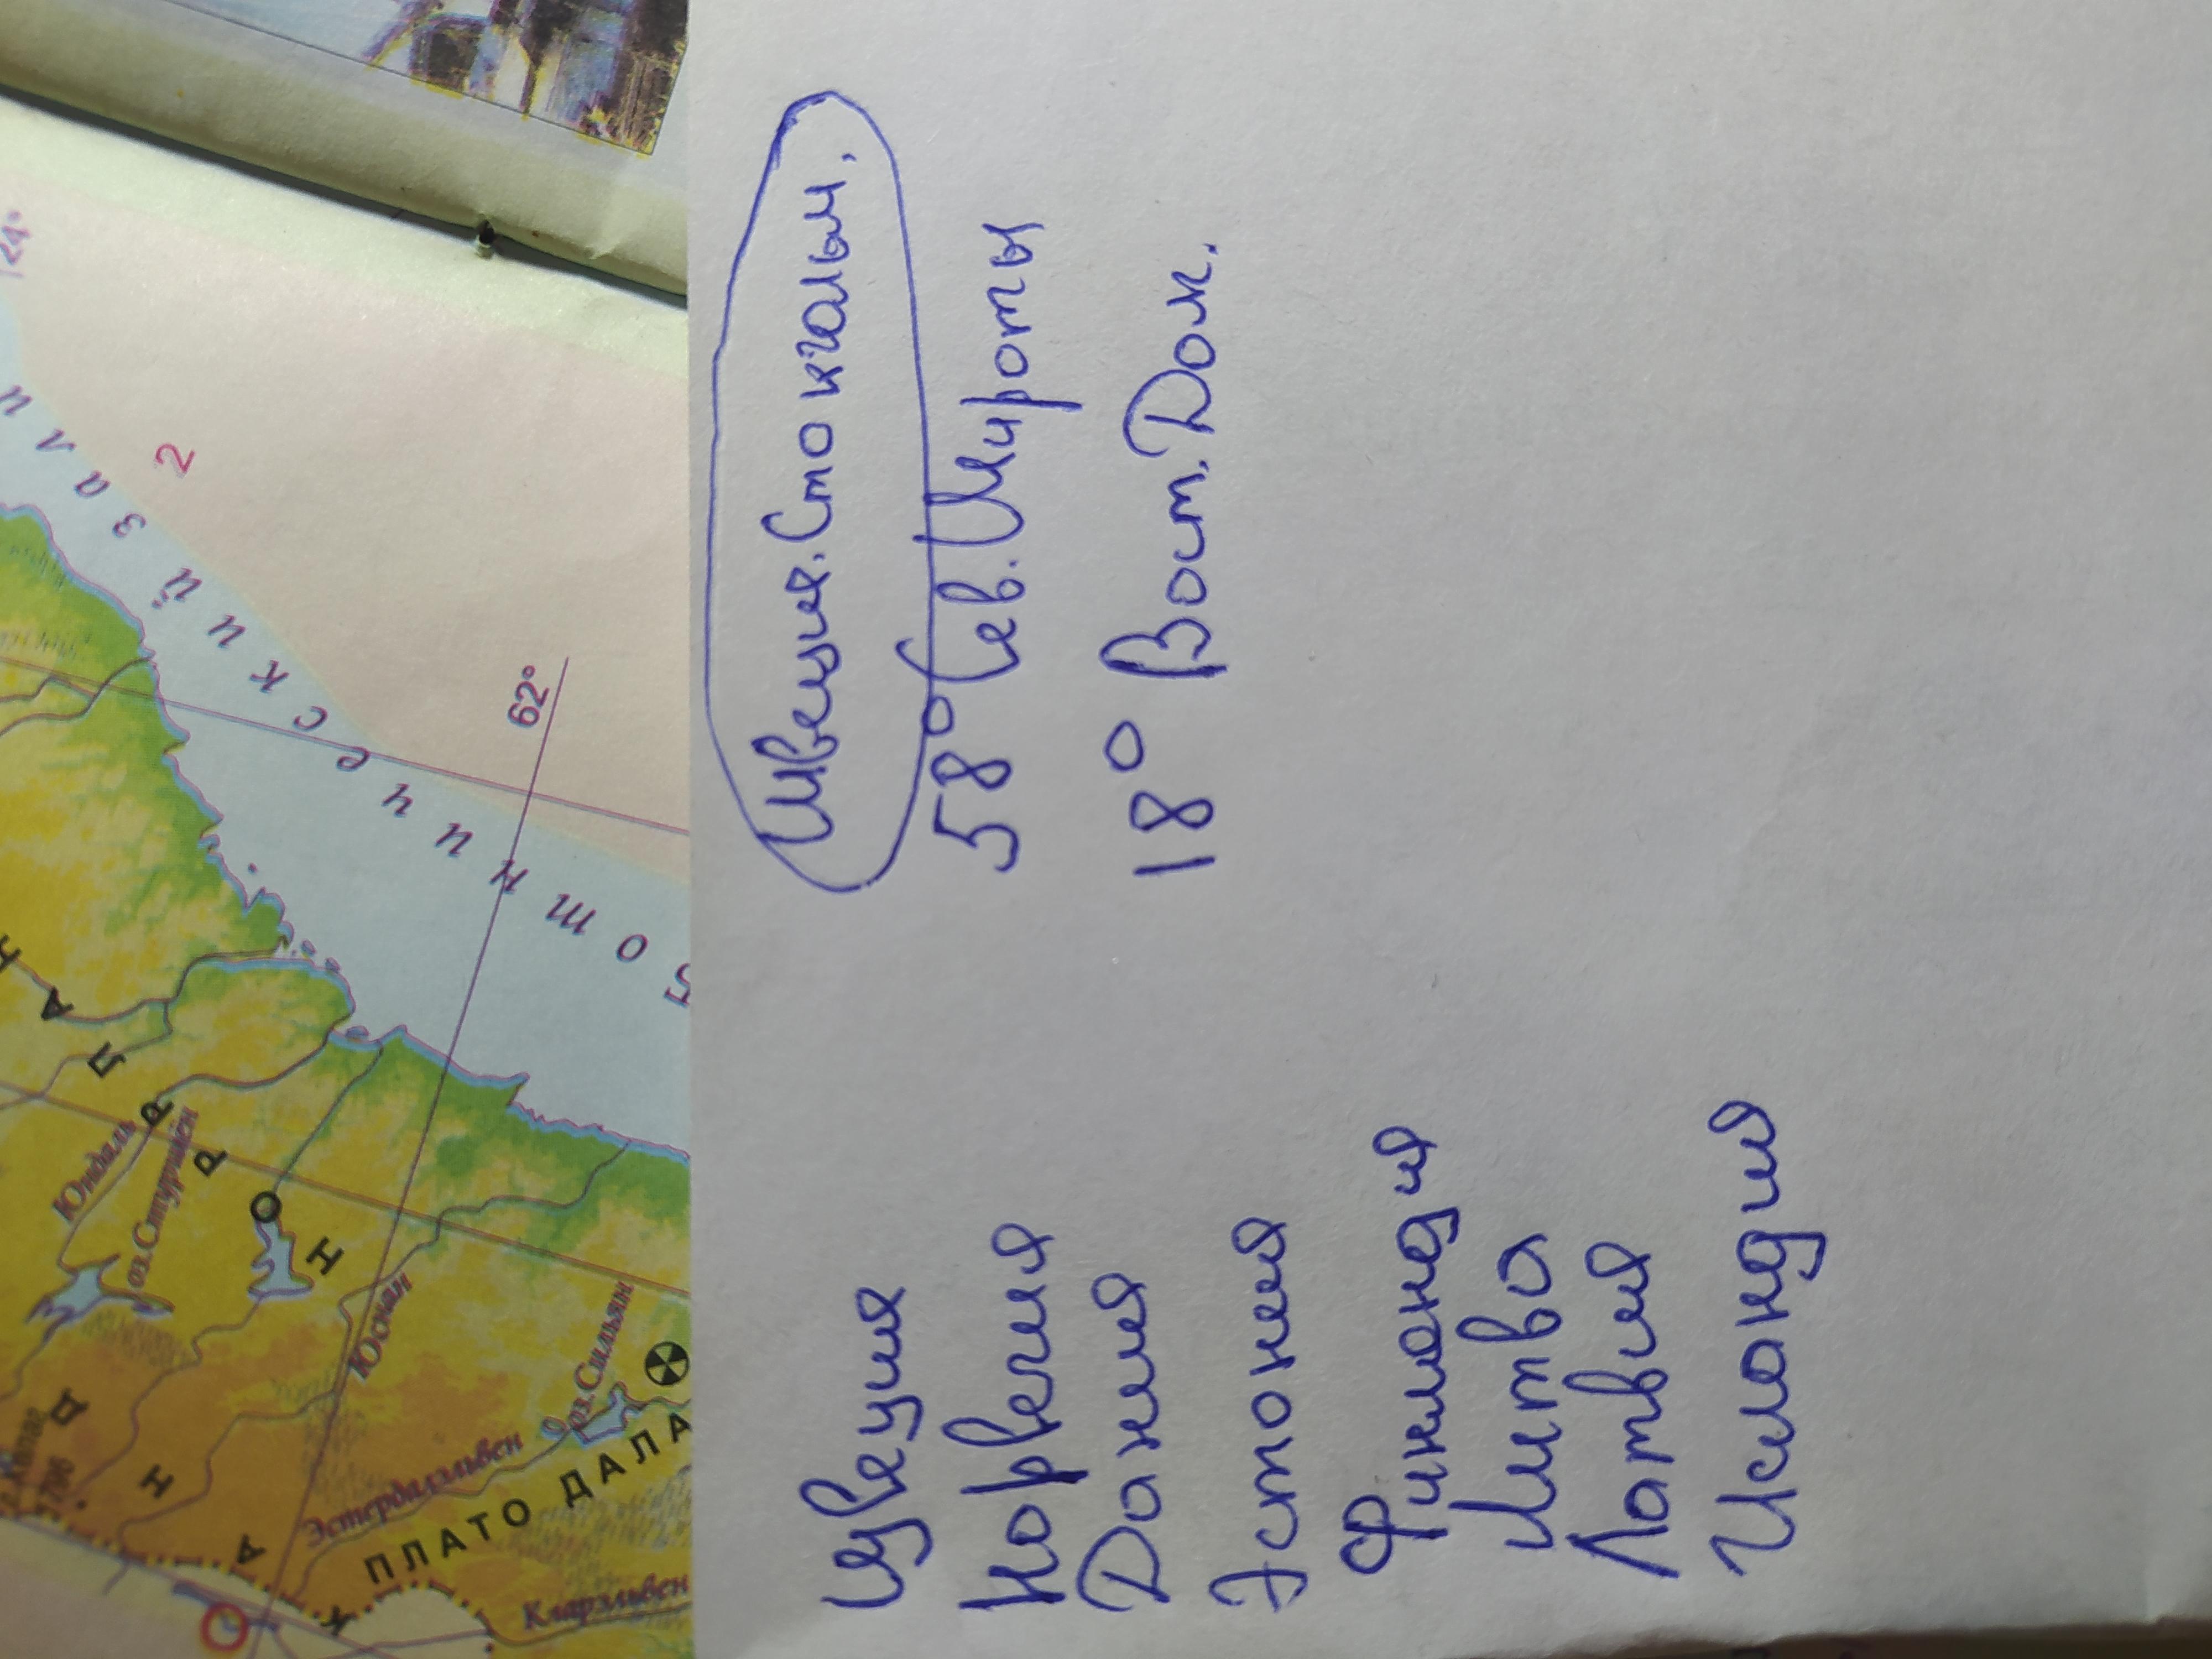 Швеция. Стокгальм.
58° Сев. Широты
18° Вост. Дол.
Швеция
Норвегия
Дания
Эстония
Финляндия
Литва
Латвия
Исландия
24°
2
62°
Ботнический залив
Юндаль
оз. Стуршён
Юснан
оз. Сильян
Эстердальэльвен
ПЛАТО ДАЛА
Кларэльвен
НОРРЛАНД
1796